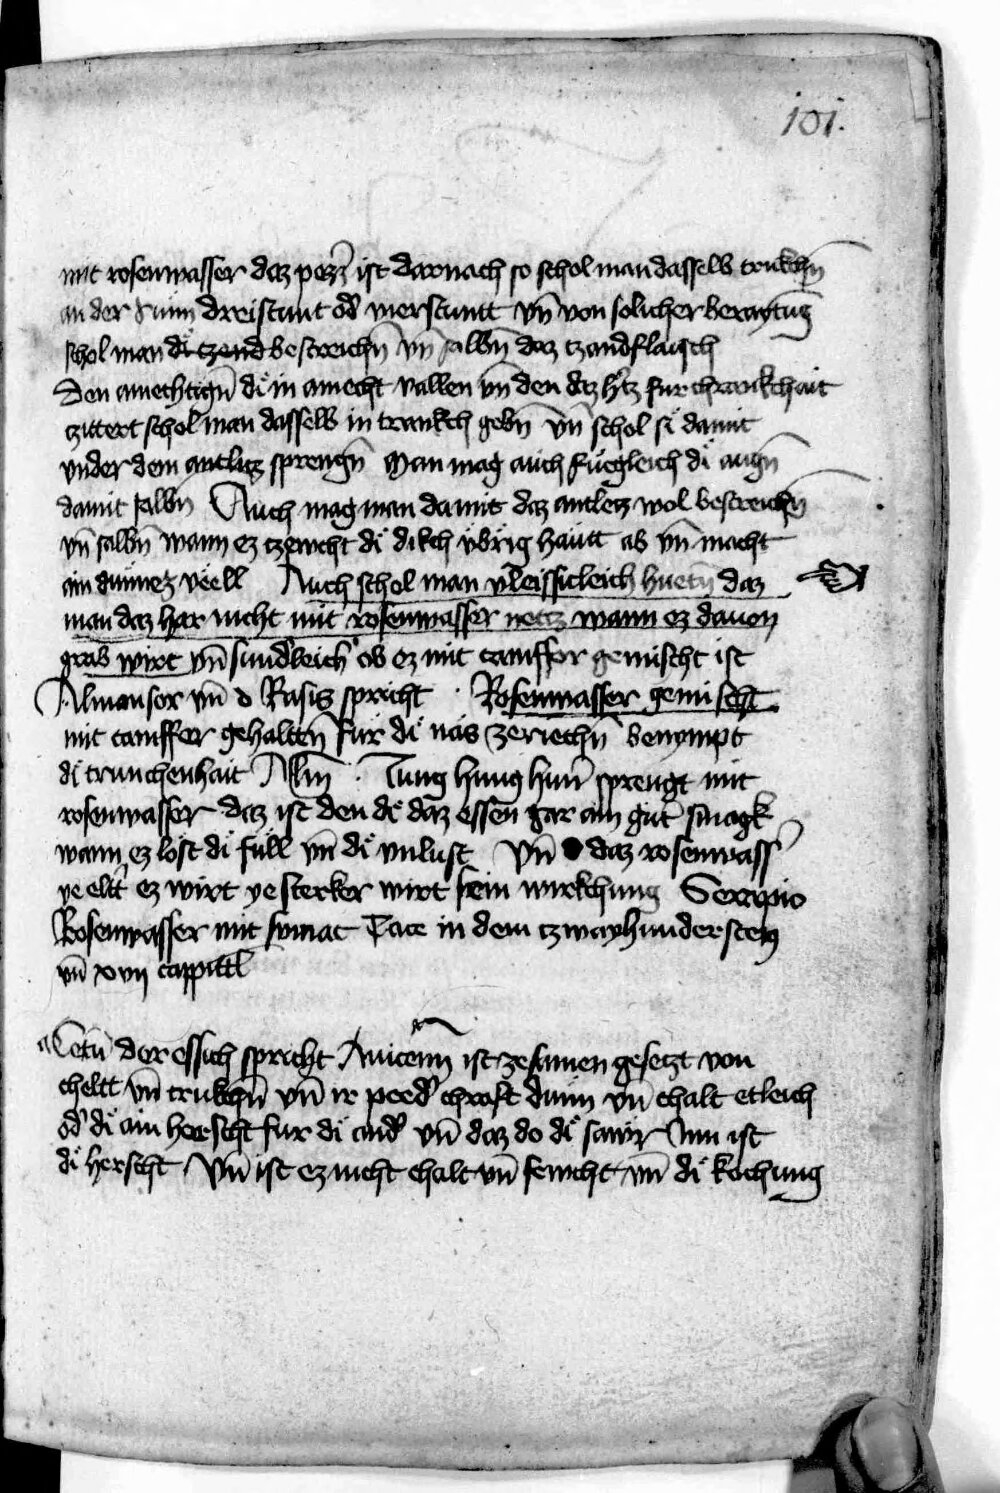 101.
mit rosenwasser daz pezz̄ ist darnach so schol man dasselb trukchn̄
an der sunn dreistunt od̄ vierstuntt vn̄ von solicher beraytūg
schol man di tzend bestreichn̄ vn̄ salbn̄ daz tzandflaisch
Den amechtign̄ di in amecht vallen vn̄ den daz hꝰtz fur chrankchait
tzittert schol man dasselb in trankch gebn̄ vn̄ schol si damit
vnder dem antlitz sprengn̄ Man mag auch fuegleich di augn̄
damit salbn̄ Auch mag man damit daz antletz wol bestreichn̄
vn̄ salbn̄ wann ez tzewcht di dikch vbrig hautt ab vn̄ macht
ain dunnez veell Auch schol man vleissicleich huetn̄ daz
man daz har nicht mit rosenwasser netz wann ez dauon
grab wirt vn̄ sundleich ob ez mit camffor gemischt ist
Almansor vn̄ d Rasis spricht Rosenwasser gemischt
mit camffer gehalttn̄ fur di nas zeriechn̄ benympt
di trunchenhait Alm̄ Jung hung hun̄ sprengt mit
rosenwasser daz ist den di daz essen gar ain gut̄ smagk
wann ez löst di füll vn̄ di vnlust Vn̄ daz rosenwass̄
ye eltt̄ ez wirt ye sterker wirt sein wurkchung Serapio
Rosenwasser mit sumac Tace in dem tzwayhundersten
vn̄ xvij cappittl̄
Acetū der essich spricht Auicenn̄ ist zesamen gesetzt von
cheltt vn̄ trukchn̄ vn̄ ir peed̄ chraft dunn vn̄ chalt etleich
od̄ di ain herscht fur di and̄ vn̄ daz do di sawr Inn ist
di herscht Vn̄ ist ez nicht chalt vn̄ fewcht vn̄ di kochung